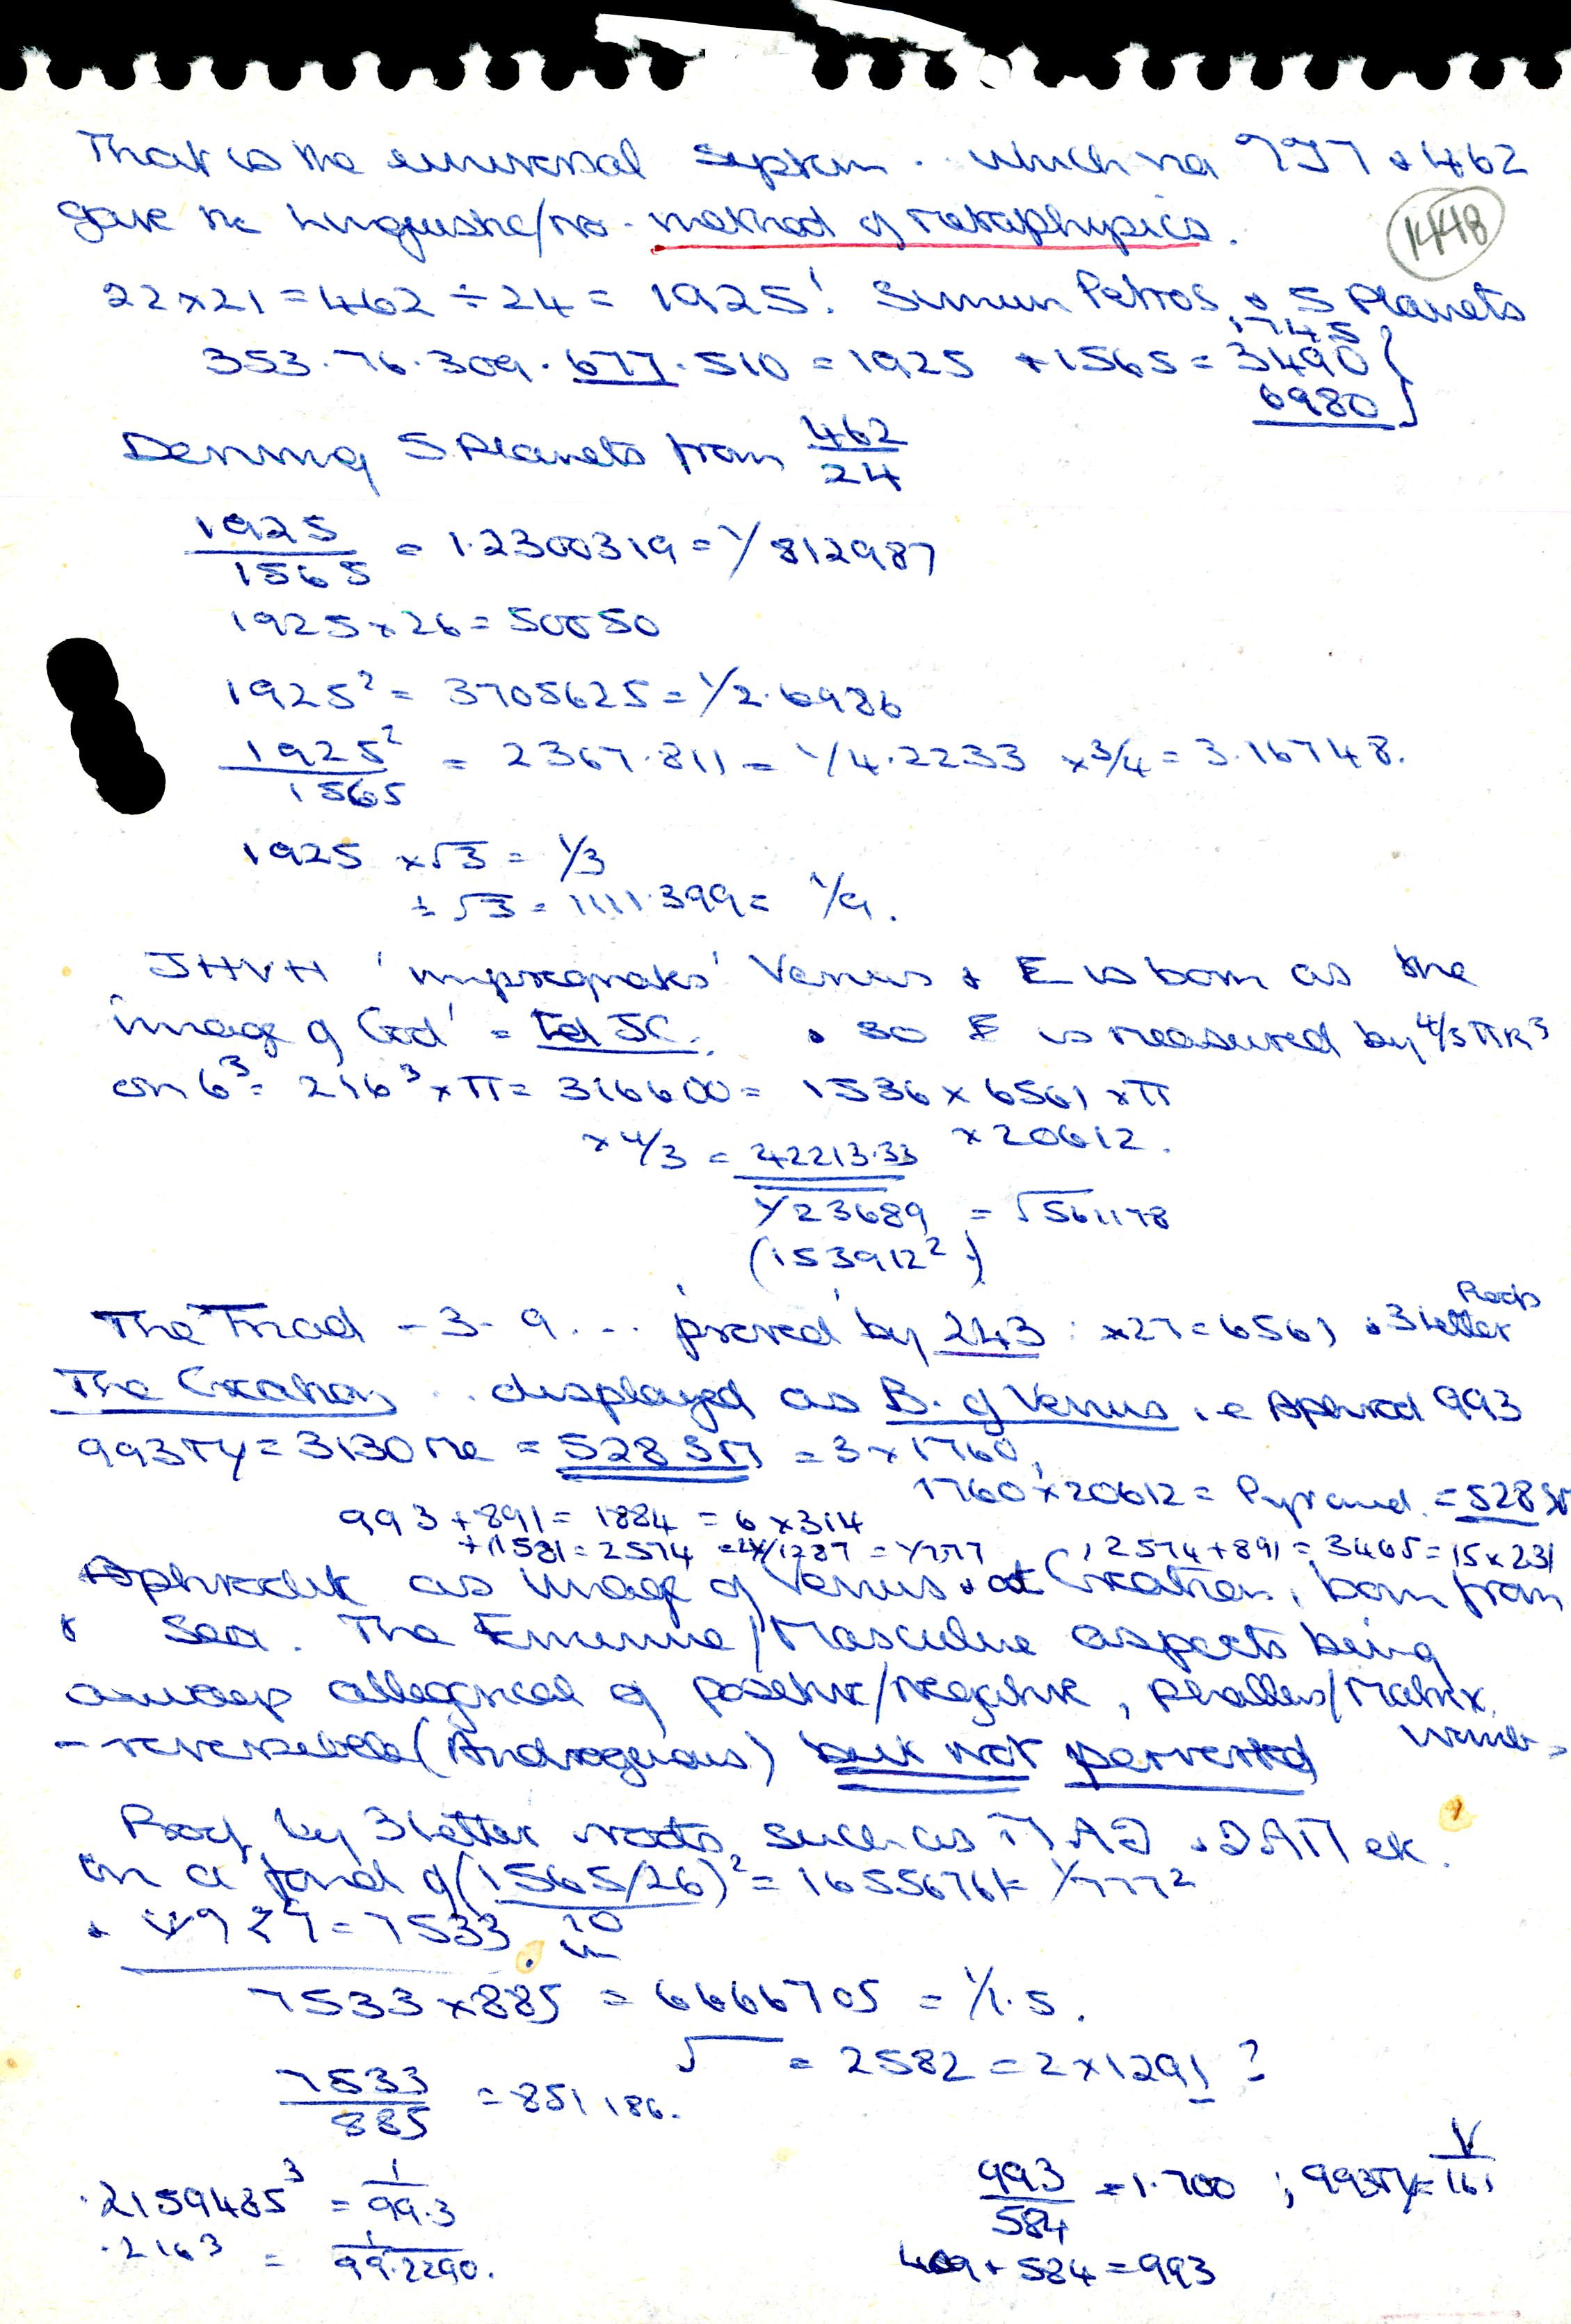 That is the universal septem .. which via 777 & 462
gave the Linguistic/No - method of metaphysics.
1448
22 x 21 = 462 ÷ 24 = 1925! Simon Petros & 5 Planets
1745
353 . 76 . 309 . 677 . 510 = 1925 + 1565 = 3490 }
6980
Deriving 5 Planets from 462/24
1925/1565 = 1.2300319 = 1/812987
1925 x 26 = 50050
1925² = 3705625 = 1/2.6986
1925²/1565 = 2367.811 = 1/4.2233 x 3/4 = 3.16748.
1925 x √3 = 1/3
÷ √3 = 1111.399 = 1/9.
JHVH 'impregnates' Venus & E is born as the
'image of God' = JC. & so E is measured by 4/3 πR³
on 6³ = 216³ x π = 316600 = 1536 x 6561 x π
x 4/3 = 42213.33 x 20612.
1/23689 = √561178
(153912²)
The Triad - 3 - 9 ... 'proved' by 243 : x 27 = 6561 & 3 letter Roots
The Creation .. displayed as B. of Venus i.e Aphrod 993
993 Ty = 3130 me = 528 SM = 3 x 1760,
1760 x 20612 = Pyramid. = 528 SM
993 + 891 = 1884 = 6 x 314
+ 1581 = 2574 = 2 x 1287 = 1/777, 2574 + 891 = 3465 = 15 x 231
Aphrodite as image of Venus & at Creation, born from
& Sea. The Feminine/Masculine aspects being
always allegorical of positive/negative, phallus/Matrix,
- reversible (Androgenous) but not perverted
Proof by 3 letter roots, such as MAD & DAM etc.
on a fond of (1565/26)² = 1655676 1/777²
10
= 7533.
7533 x 885 = 6666705 = 1/1.5.
√ = 2582 = 2 x 1291 ?
7533/885 = 851186.
.2159485³ = 1/99.3
.216³ = 1/99.2290.
993/584 = 1.700 ; 993Ty = V/161
409 + 584 = 993